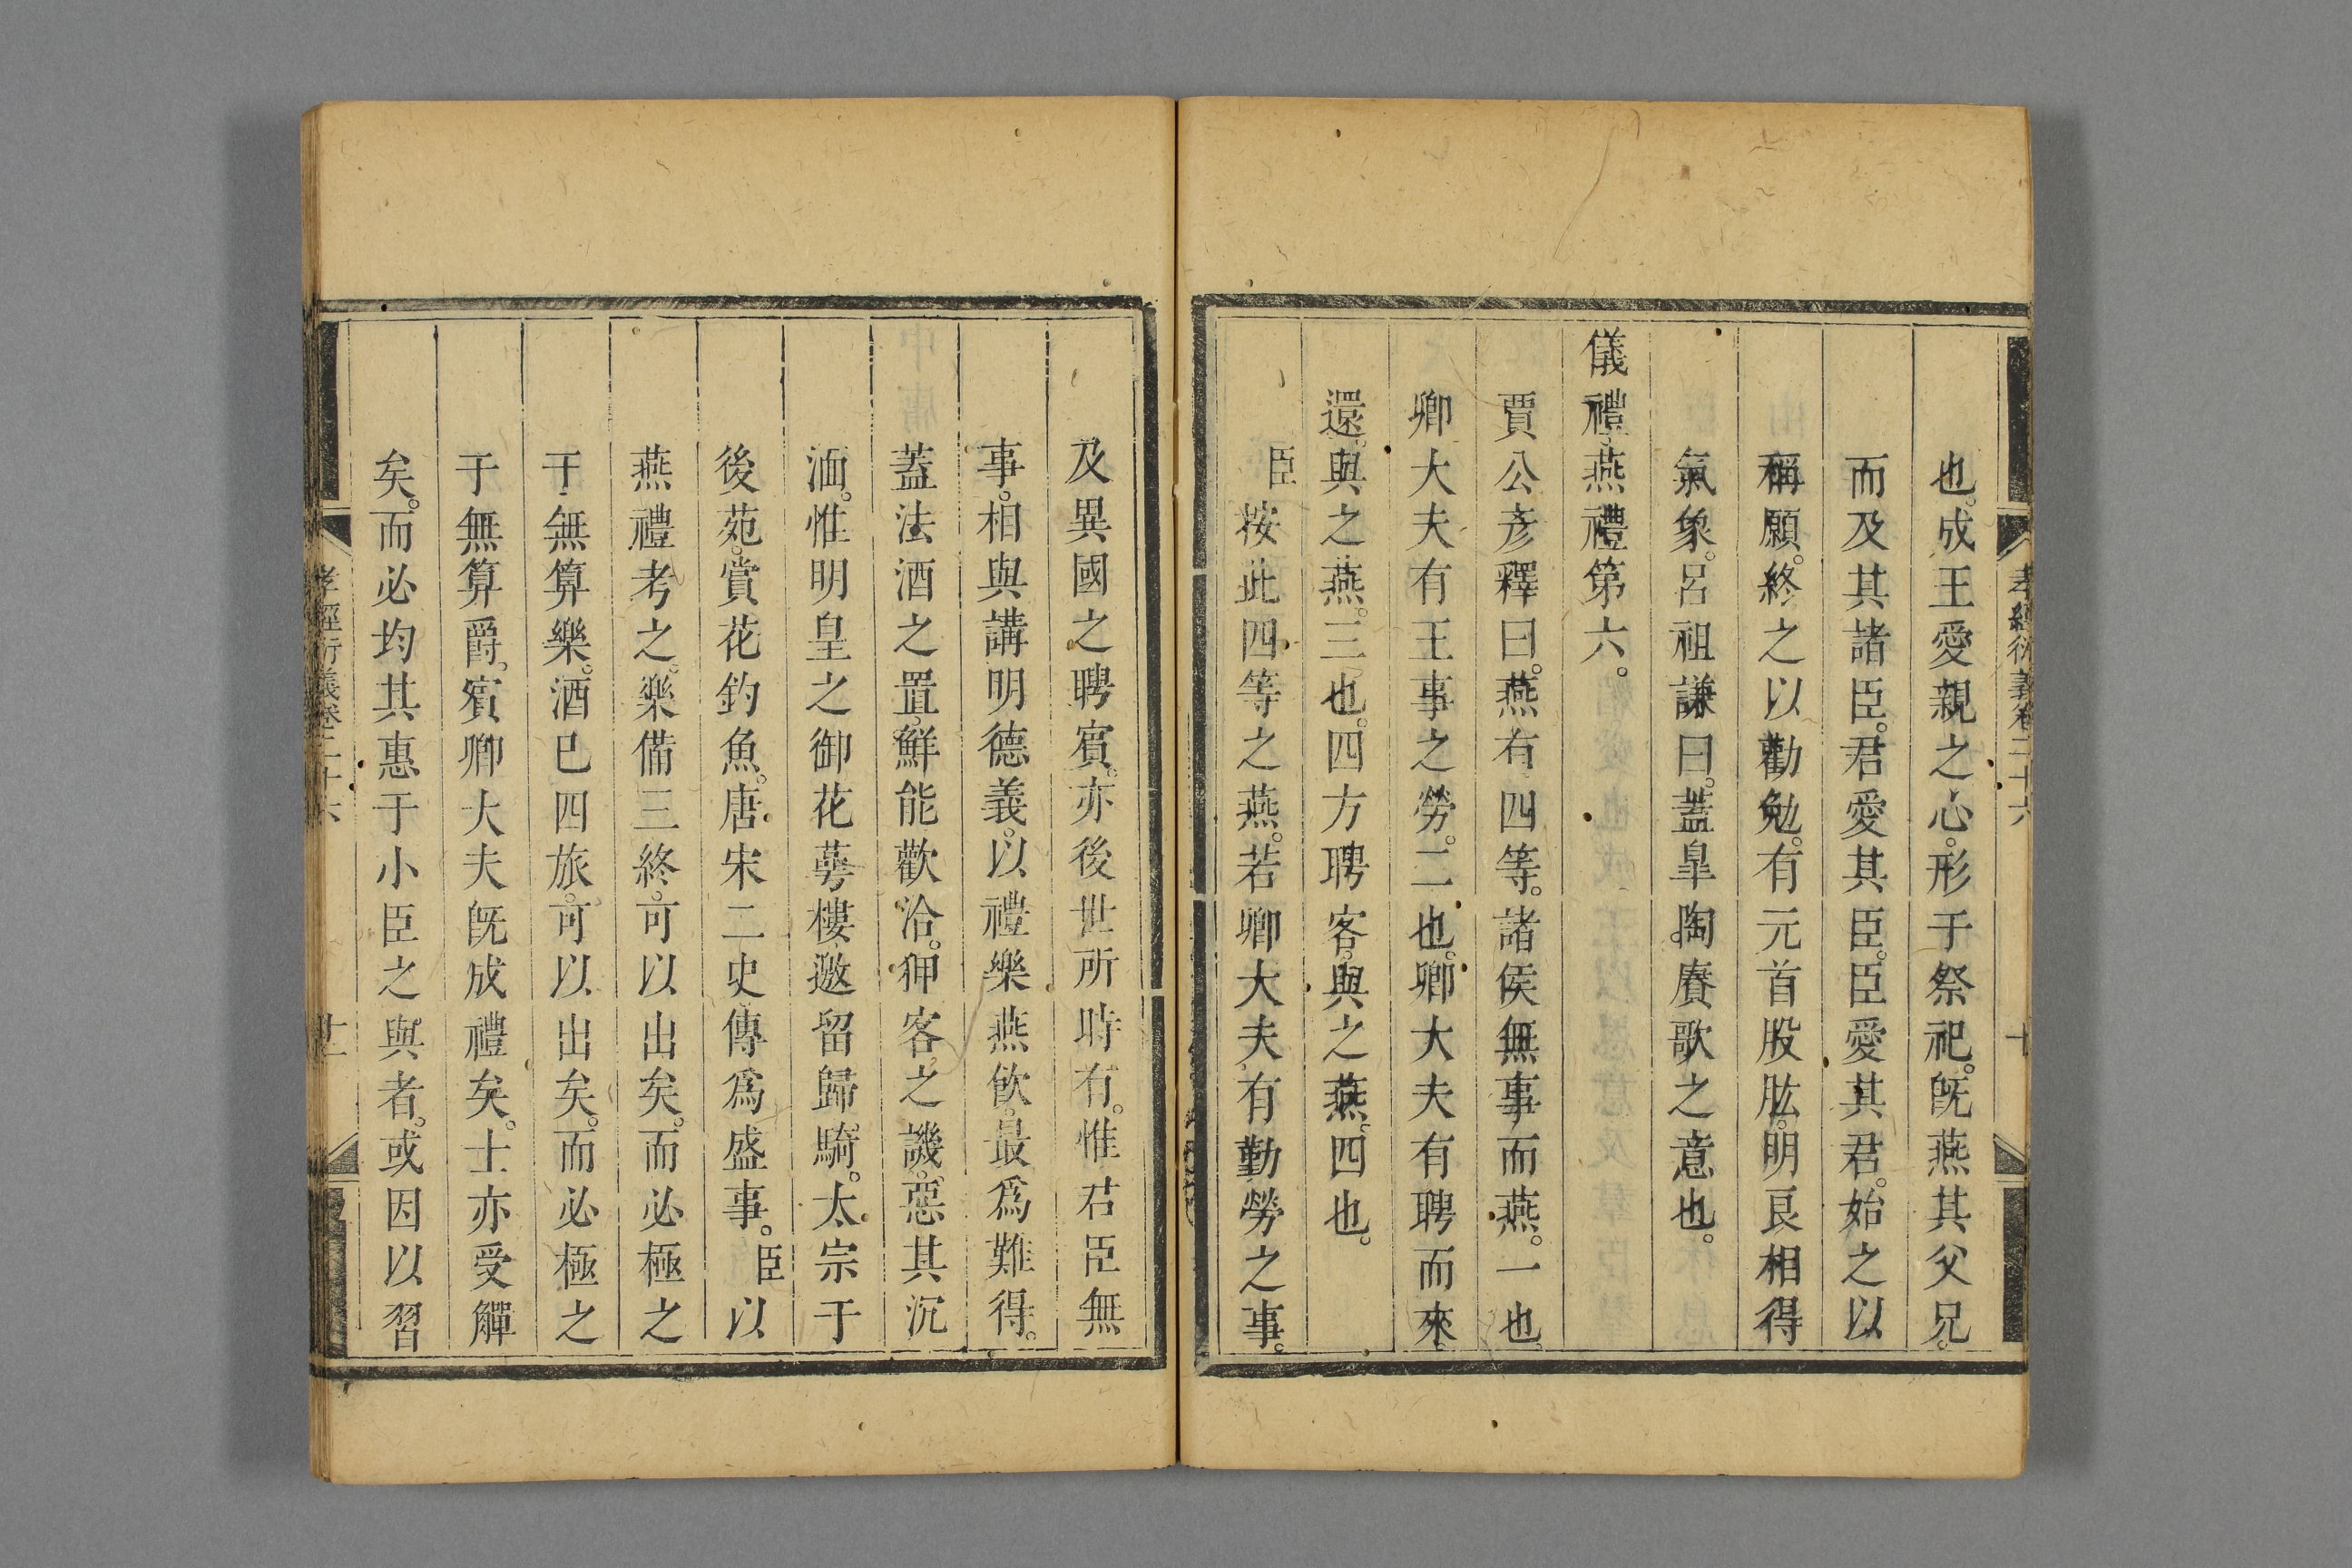 孝經衍義卷二十六
十
也。成王愛親之心。形于祭祀。旣燕其父兄。
而及其諸臣。君愛其臣。臣愛其君。始之以
稱願。終之以勸勉。有元首股肱。明良相得
氣象。呂祖謙曰。蓋臯陶賡歌之意也。
儀禮。燕禮第六。
賈公彥釋曰。燕有四等。諸侯無事而燕。一也。
卿大夫有王事之勞。二也。卿大夫有聘而來。
還。與之燕。三也。四方聘客。與之燕。四也。
臣按此四等之燕。若卿大夫有勤勞之事。
及異國之聘賓。亦後世所時有。惟君臣無
事。相與講明德義。以禮樂燕飲。最爲難得。
蓋法酒之置。鮮能歡洽。狎客之譏。惡其沉
湎。惟明皇之御花萼樓。邀留歸騎。太宗于
後苑。賞花釣魚。唐宋二史傳爲盛事。臣以
燕禮考之。樂備三終。可以出矣。而必極之
于無算樂。酒已四旅。可以出矣。而必極之
于無算爵。賓卿大夫旣成禮矣。士亦受觶
矣。而必均其惠于小臣之與者。或因以習
孝經衍義卷二十六
十一